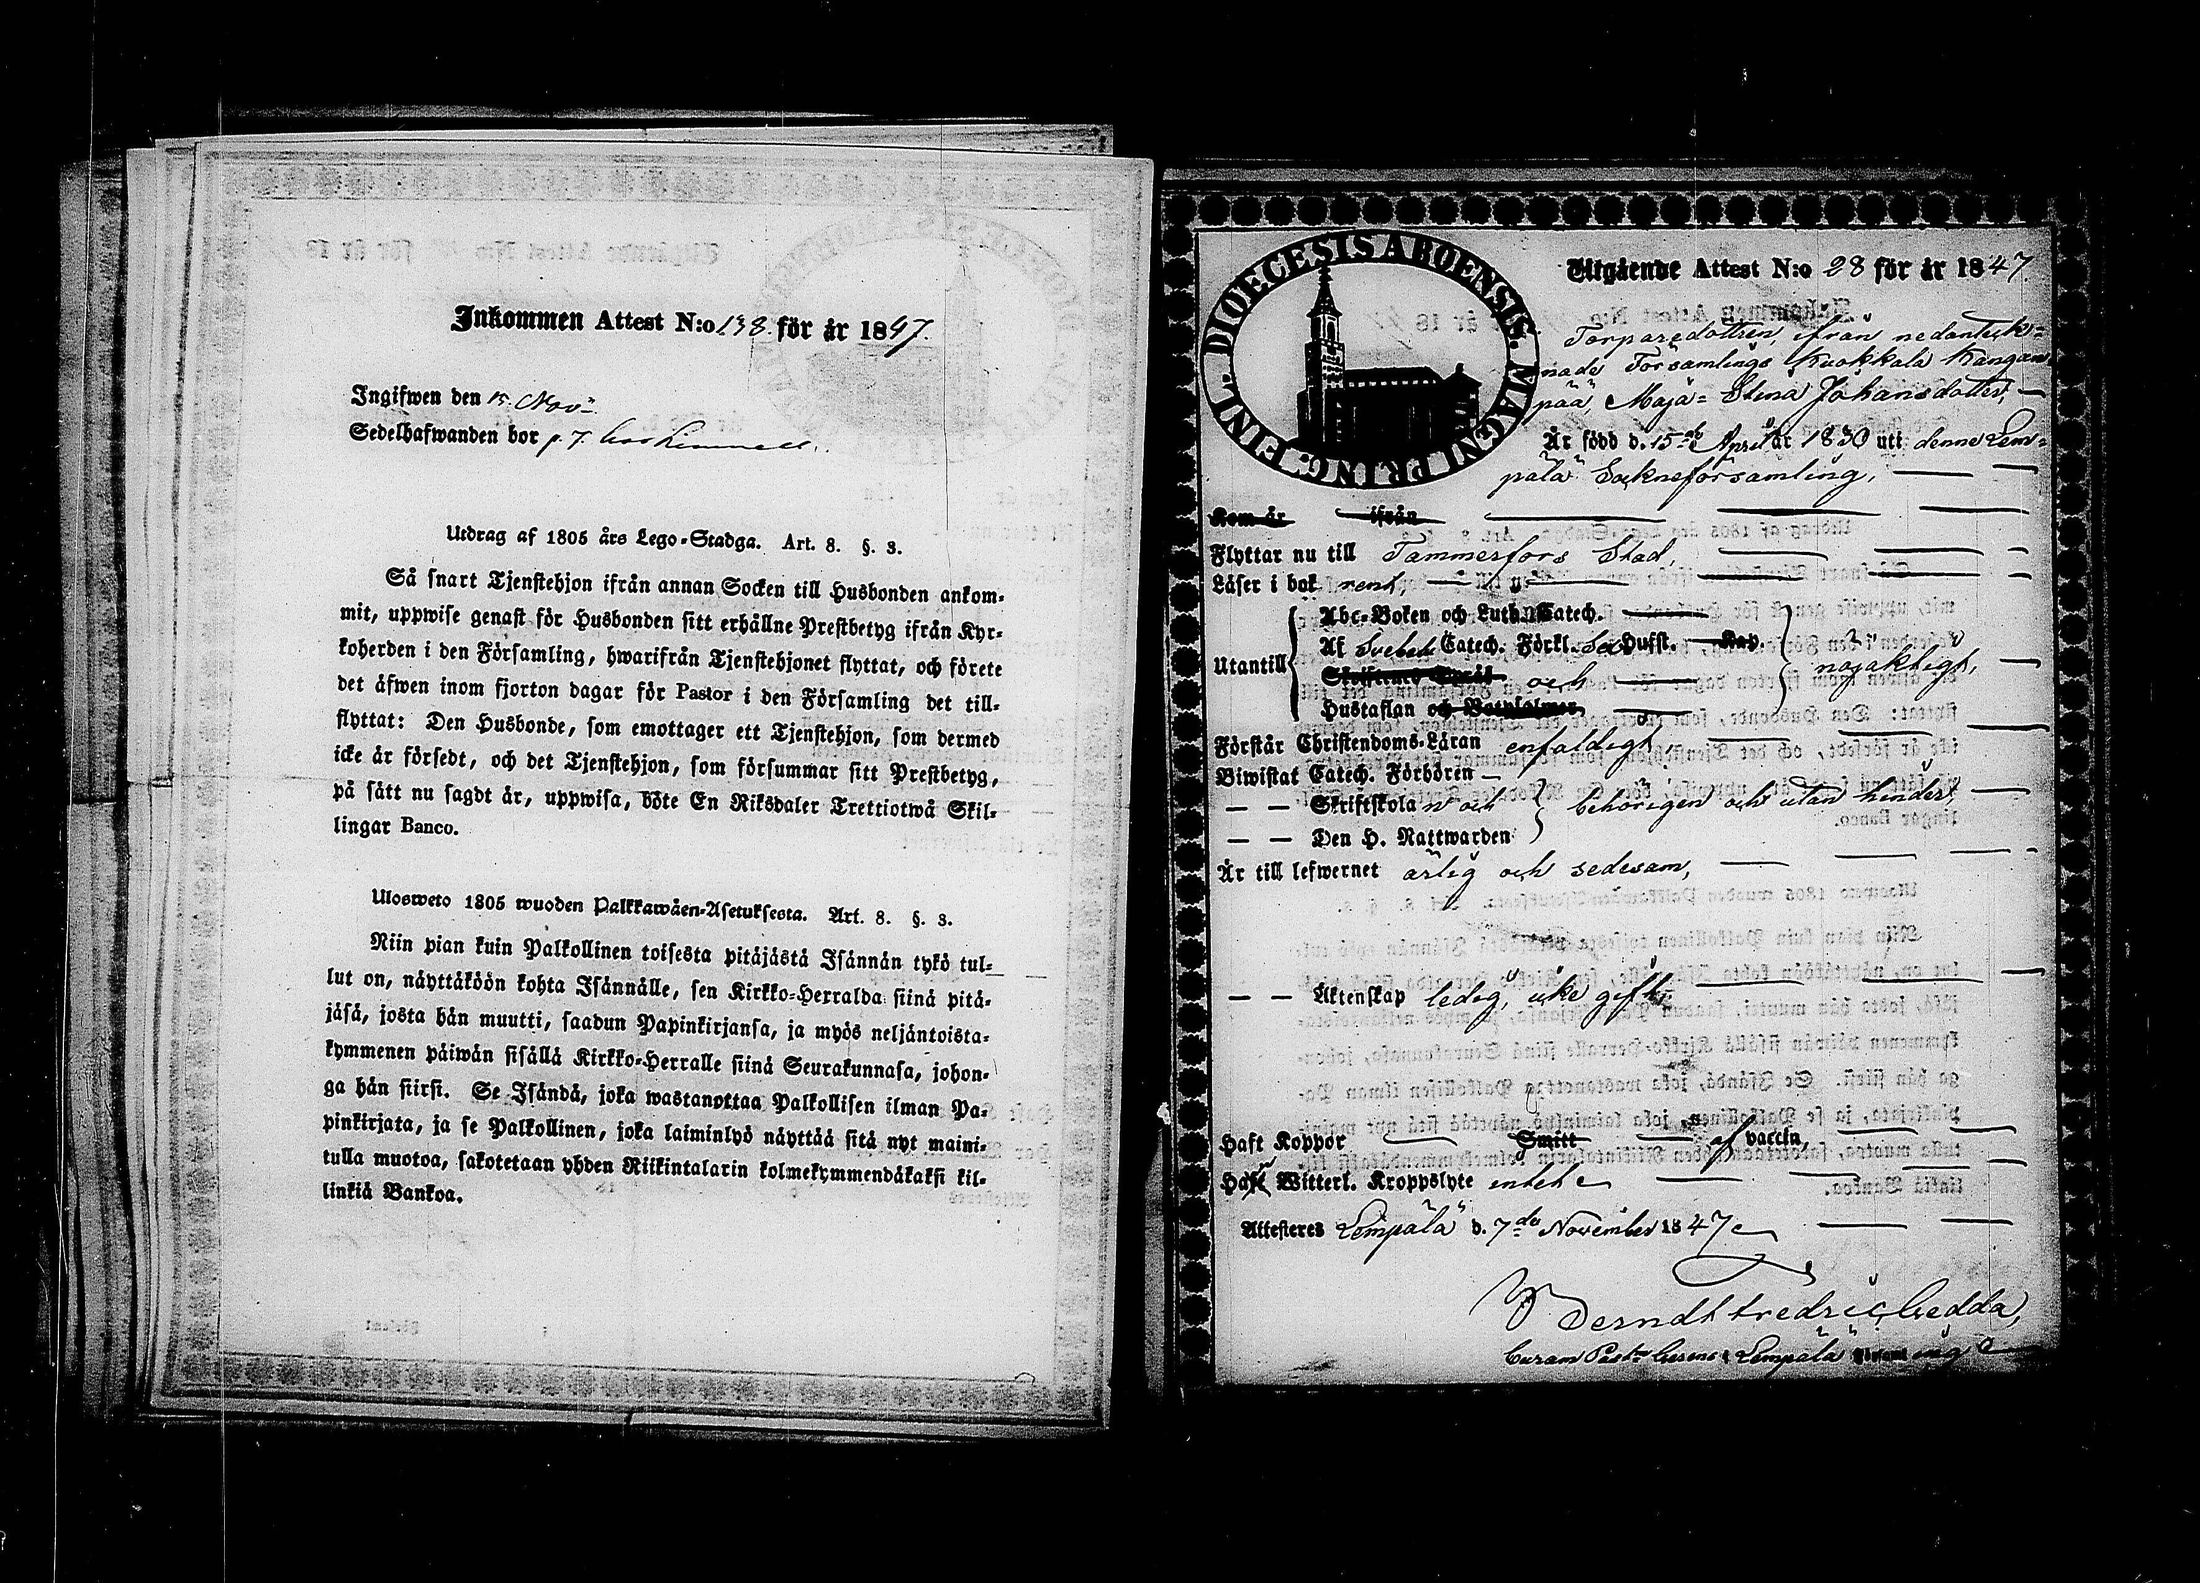 Inkommen Attest N:o 138 för år 1847.
Ingifwen den 15 Nov:
Sedelhafwanden bor p. 7.
Utdrag af 1805 års Lego-Stadga. Art. 8. §. 3.
Så snart Tjenstehjon ifrån annan Socken till Husbonden ankom-
mit, uppwise genast för Husbonden sitt erhållne Prestbetyg ifrån Kyr-
koherden i den Församling, hwarifrån Tjenstehjonet flyttat, och förete
det äfwen inom fjorton dagar för Pastor i den Församling det till-
flyttat: Den Husbonde, som emottager ett Tjenstehjon, som dermed
icke är försedt, och det Tjenstehjon, som försummar sitt Prestbetyg,
på sätt nu sagdt är, uppwisa, böte En Riksdaler Trettiotwå Skil-
lingar Banco.
Ulosweto 1805 wuoden Palkkawäen-Asetuksesta. Art. 8. §. 3.
Niin pian kuin Palkollinen toisesta pitäjästä Isännän tykö tul-
lut on, näyttäköön kohta Isännälle, sen Kirkko-Herralda siinä pitä-
jäsä, josta hän muutti, saadun Papinkirjansa, ja myös neljäntoista-
kymmenen päiwän sisällä Kirkko-Herralle siinä Seurakunnasa, johon-
ga hän siirsi. Se Isändä, joka wastanottaa Palkollisen ilman Pa-
pinkirjata, ja se Palkollinen, joka laiminlyö näyttää sitä nyt maini-
tulla muotoa, sakotetaan yhden Riikintalarin kolmekymmendäkaksi kil-
linkiä Bankoa.
FINL. DIOECESIS ABOENSIS. MAGNI PRINC.
Utgående Attest N:o 28 för år 1847
Torparedottren, från nedanteck-
nade Församlings Kuokkala Kangan-
pää, Maja-Stina Johansdotter,
Är född d. 15de April år 1830 uti denne Lem-
pälä Sockneförsamling,
Kom år ifrån
Flyttar nu till Tammerfors Stad,
Läser i bok rent,
Abc-Boken och Luth. Catech.
Af Svebel. Catech. Förkl. Hufst. Kap.
Utantill
Skriftenes Språk och
nöjaktigt,
Hustaflan och Botpsalmer
Förstår Christendoms-Läran enfaldigt,
Biwistat Catech. Förhören
— — Skriftskolan och behörigen och utan hinder,
— — Den H. Nattwarden
Är till lefwernet ärlig och sedesam,
— — Äktenskap ledig, icke gift,
Haft Koppor Smitt af vaccin,
Haft Witterl. Kroppslyte intet
Attesteres Lempälä d. 7de November 1847
Berndt Fredric Gedda,
Curam Past. Gerens i Lempälä